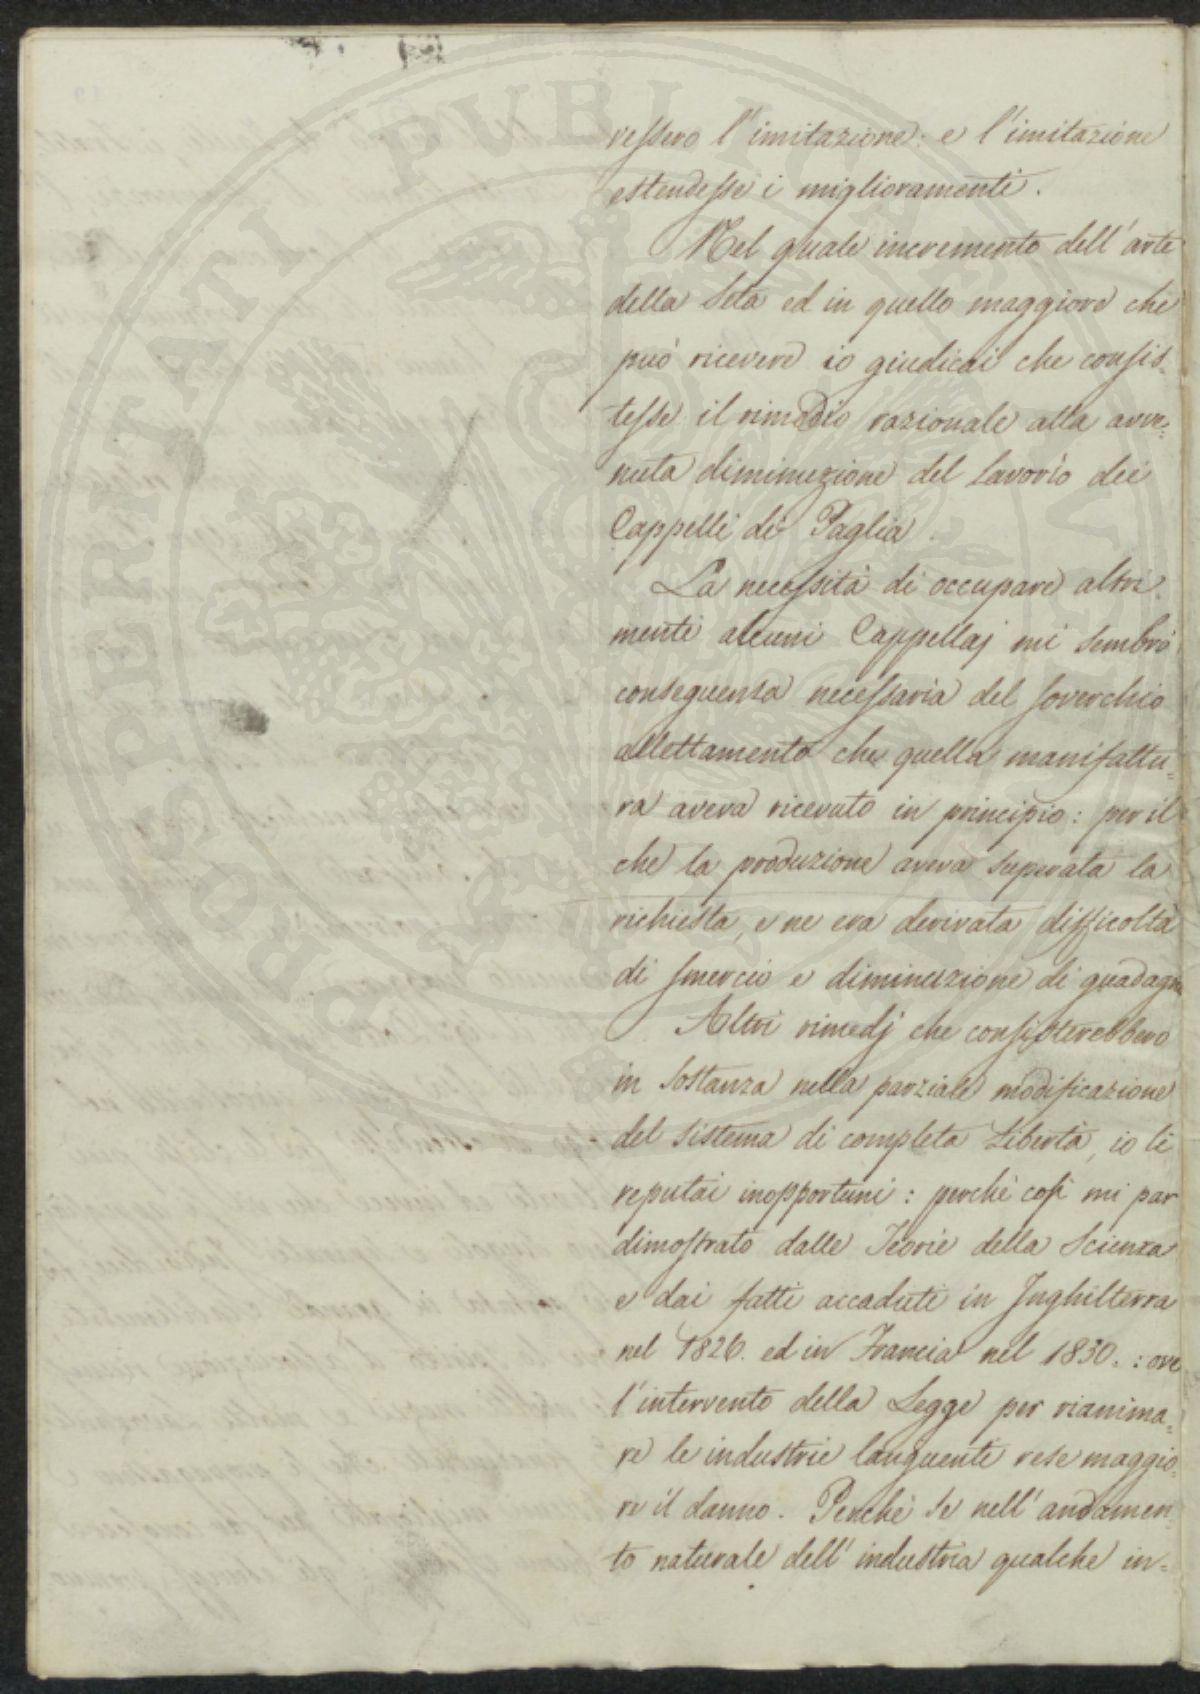 vessero l'imitazione: e l'imitazione
estendesse i miglioramenti.
Nel quale incremento dell'arte
della Seta ed in quello maggiore che
può ricevere io giudicai che consis-
tesse il rimedio razionale alla avve-
nuta diminuzione del lavorio dei
Cappelli di Paglia.
La necessità di occupare altri-
menti alcuni Cappellaj mi sembrò
conseguenza necessaria del soverchio
allettamento che quella manifattu-
ra aveva ricevuto in principio: per il
che la produzione aveva superata la
richiesta, e ne era derivata difficoltà
di smercio e diminuzione di guadagni
Altri rimedj che consisterebbero
in Sostanza nella parziale modificazione
del sistema di completa Libertà, io li
reputai inopportuni: perchè così mi par
dimostrato dalle Teorie della Scienza
e dai fatti accaduti in Inghilterra
nel 1826. ed in Francia nel 1830.: ove
l'intervento della Legge per rianima-
re le industrie languenti rese maggio-
re il danno. Perchè se nell'andamen-
to naturale dell'industria qualche in-
PROSPERITATI PUBLICAE